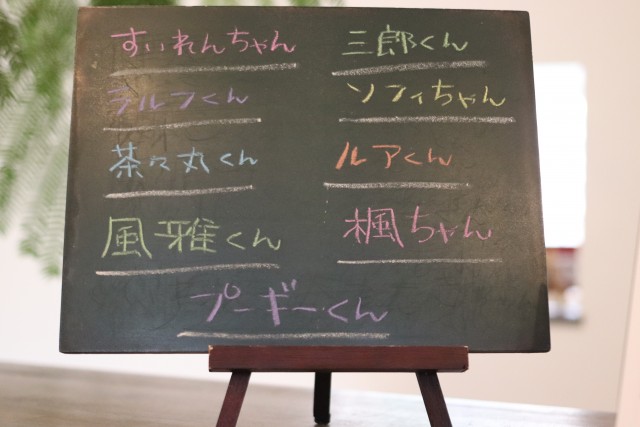 すいれんちゃん
三郎くん
ラルフくん
ソフィちゃん
茶々丸くん
ルアくん
風雅くん
楓ちゃん
プーギーくん